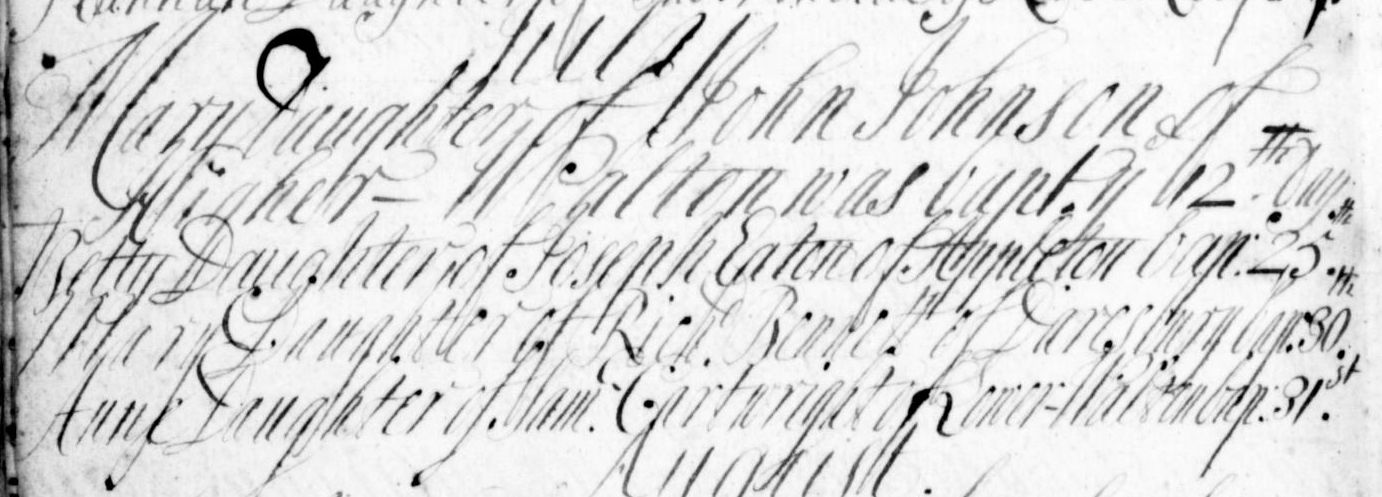 Hannah Daughter of
July
Mary Daughter of John Johnson of
Higher-Walton was bapt. ye 12th. day
Betty Daughter of Joseph Eaton of Appleton bap: 25.th
Mary Daughter of Rich: Bennett of Daresbury bap: 30.th
Anne Daughter of Sam:l Cartwright of Lower-Walton bap: 31.st
August.